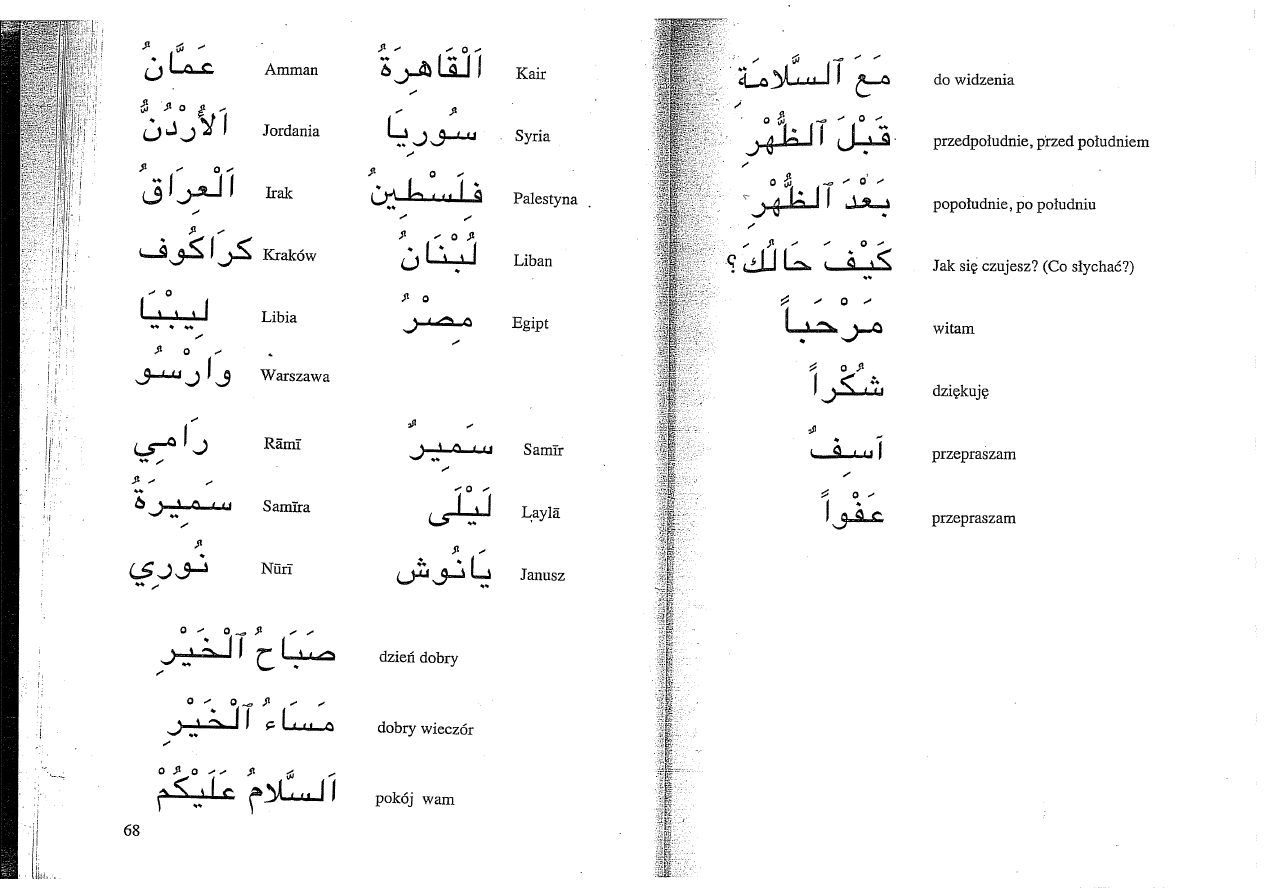 عَمَّانُ Amman اَلْقَاهِرَةُ Kair
اَلأُرْدُنُّ Jordania سُورِيَا Syria
اَلْعِرَاقُ Irak فِلَسْطِينُ Palestyna
كرَاكُوف Kraków لُبْنَانُ Liban
لِيبْيَا Libia مِصْرُ Egipt
وَارْسُو Warszawa
رَامِي Rāmī سَمِيرٌ Samīr
سَمِيرَةُ Samīra لَيْلَى Laylā
نُورِي Nūrī يَانُوش Janusz
صَبَاحُ ٱلْخَيْرِ dzień dobry
مَسَاءُ ٱلْخَيْرِ dobry wieczór
اَلسَّلامُ عَلَيْكُمْ pokój wam
68
مَعَ ٱلسَّلامَةِ do widzenia
قَبْلَ ٱلظُّهْرِ przedpołudnie, przed południem
بَعْدَ ٱلظُّهْرِ popołudnie, po południu
كَيْفَ حَالُكَ؟ Jak się czujesz? (Co słychać?)
مَرْحَباً witam
شُكْراً dziękuję
آسِفٌ przepraszam
عَفْواً przepraszam